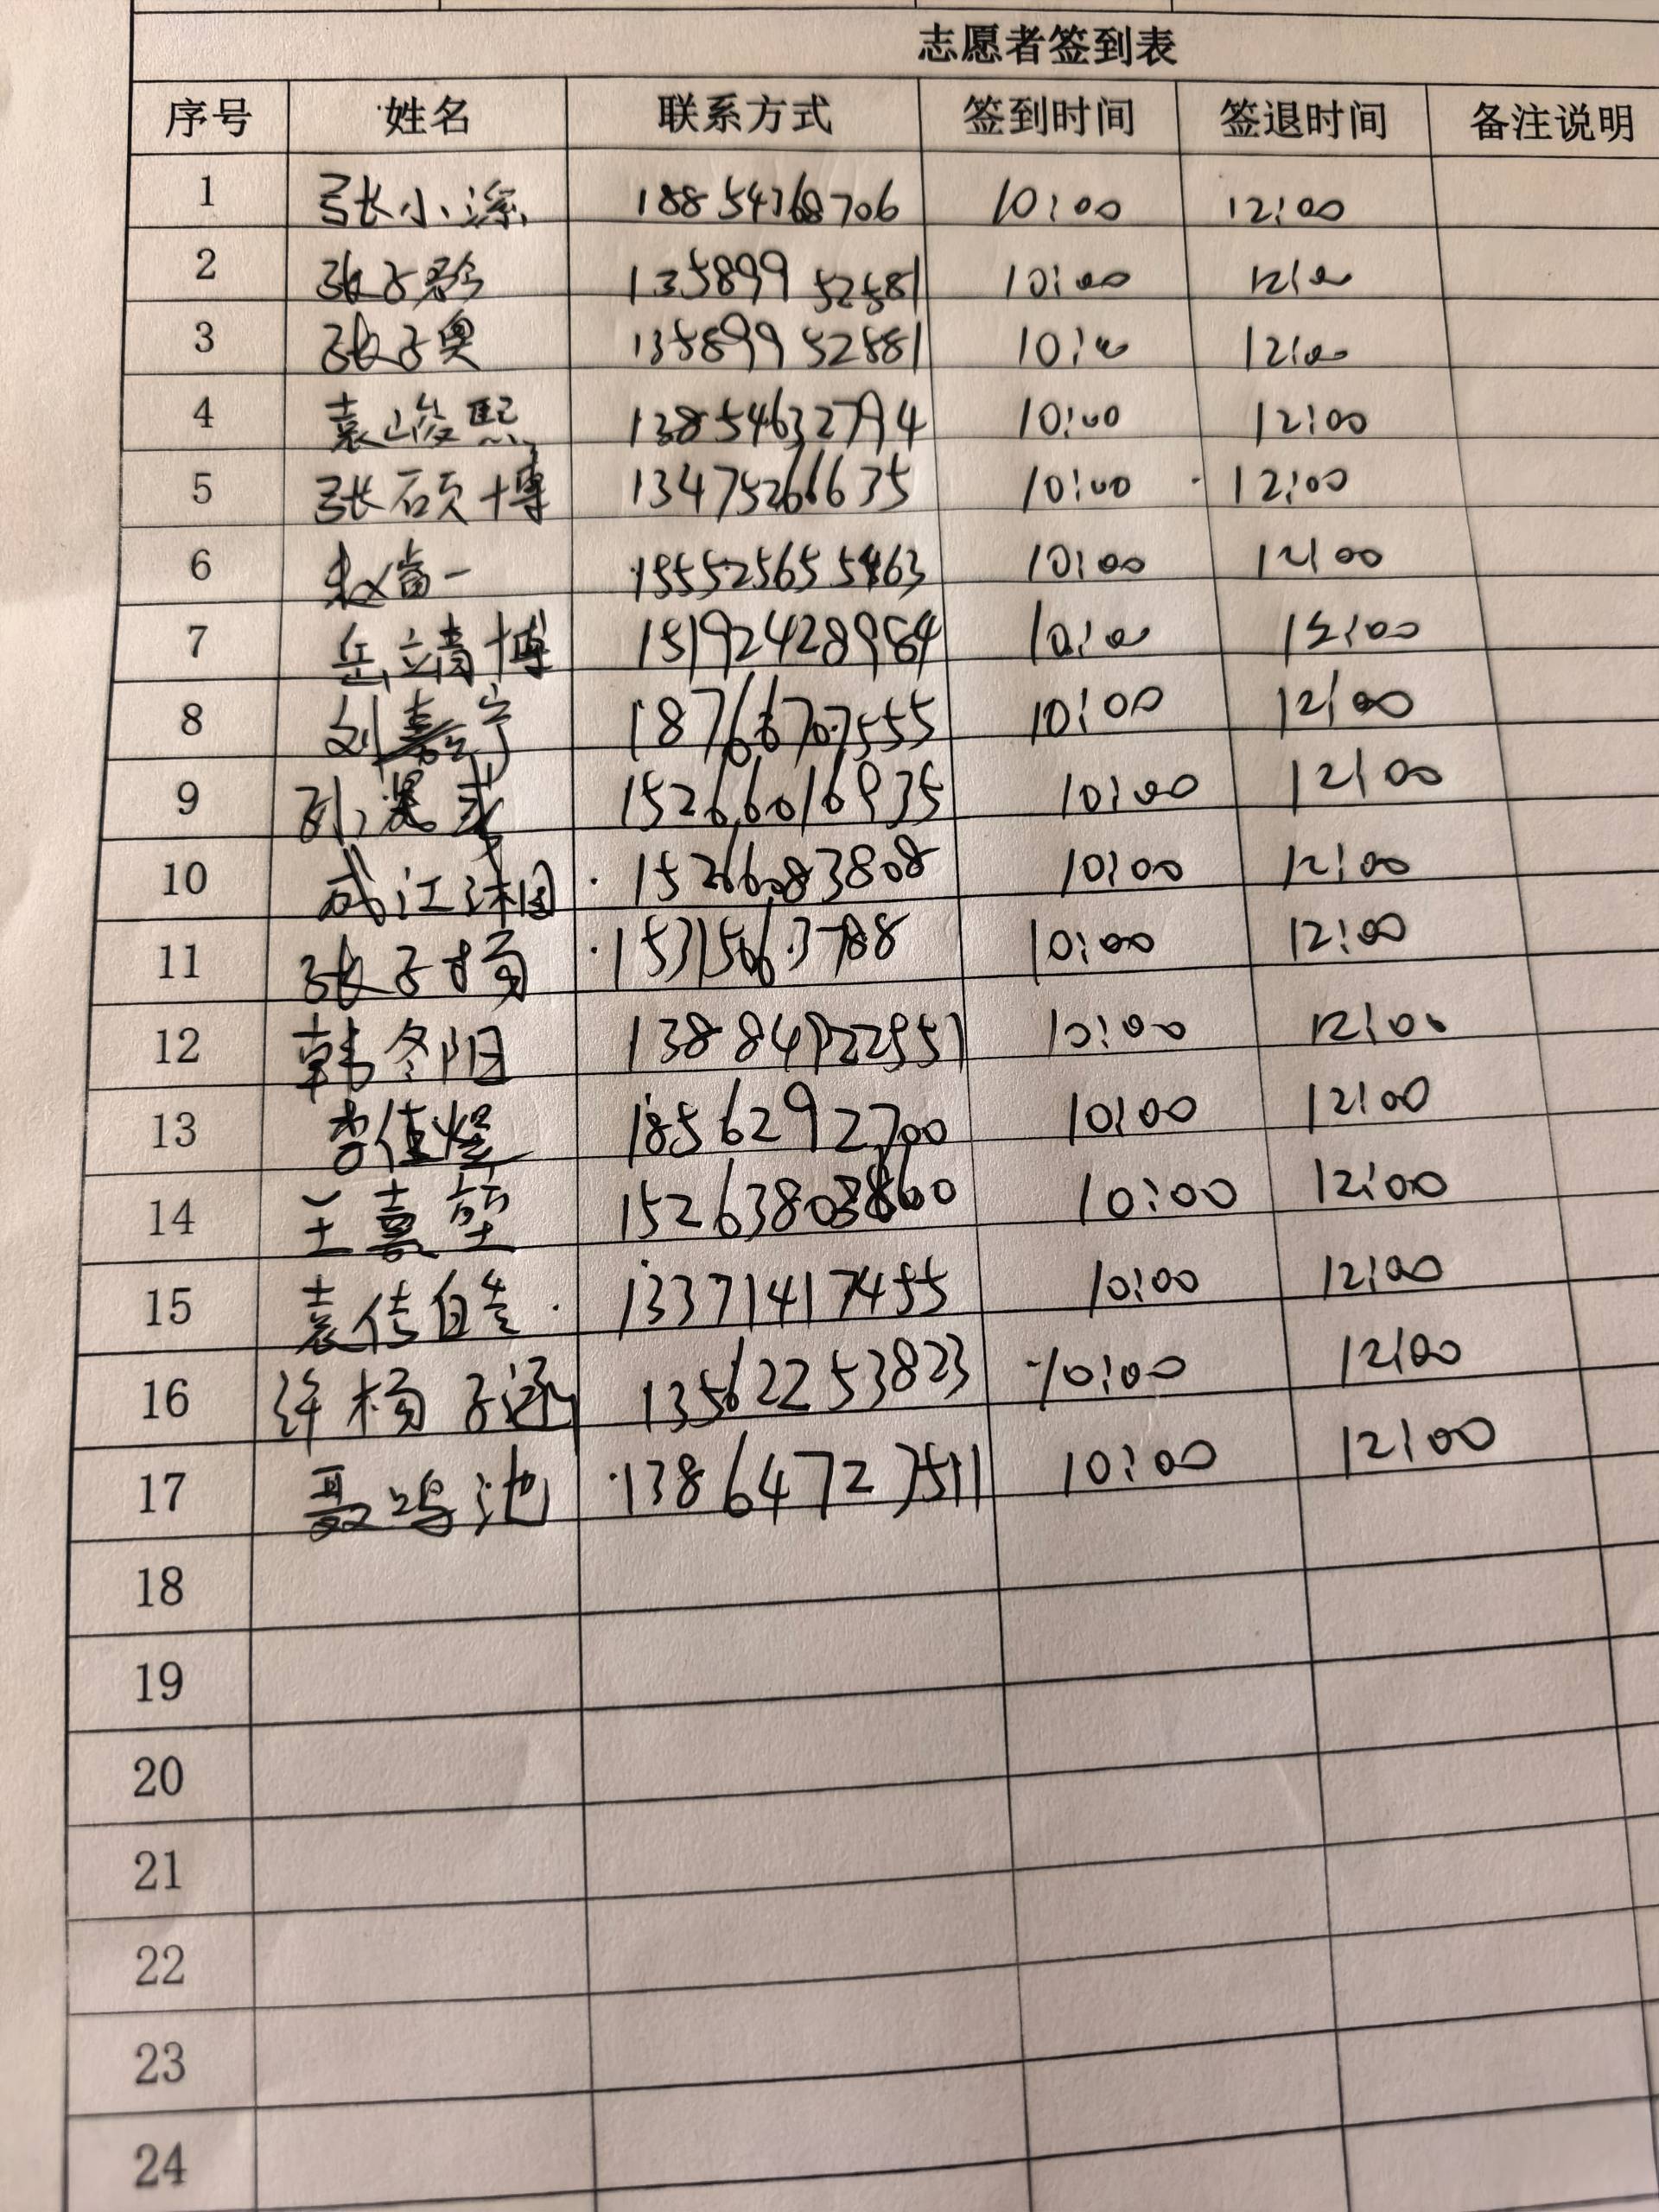 志愿者签到表
序号 姓名 联系方式 签到时间 签退时间 备注说明
1 张小涵 10:00 12:00
2 张子 13589952581 10:00 12:00
3 张子奥 13589952581 10:00 12:00
4 袁峻熙 13854632794 10:00 12:00
5 张硕博 13475266635 10:00 12:00
6 一 10:00 12:00
7 岳靖博 15192428984 10:00 12:00
8 刘嘉宁 18766707555 10:00 12:00
9 15266016935 10:00 12:00
10 成江沐 15266083808 10:00 12:00
11 张子 15315663788 10:00 12:00
12 韩冬阳 10:00 12:00
13 李佳煜 1856292700 10:00 12:00
14 王嘉 10:00 12:00
15 袁传 13371417455 10:00 12:00
16 许杨子涵 13562253823 10:00 12:00
17 聂鸣池 13864727511 10:00 12:00
18
19
20
21
22
23
24